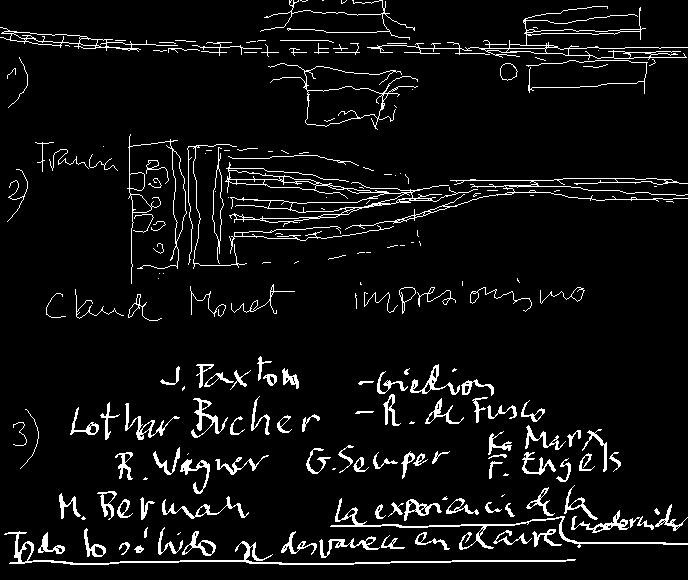 1)
Francia
2)
Claude Monet impresionismo
J. Paxtom - Giedion
Lothar Bucher - R. de Fusco
3)
R. Wagner G. Semper K. Marx
F. Engels
M. Berman La experiencia de la
Todo lo sólido se desvanece en el aire (modernidad